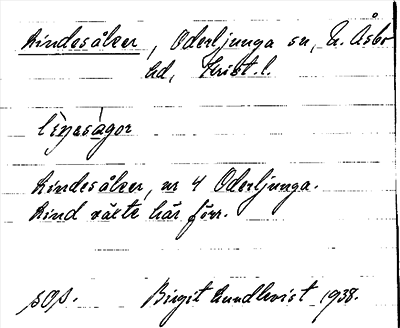 Lindesåker, Oderljunga sn, N. Åsbo
hd, Krist. l.
Lindesåker, nr 4 Oderljunga.
Lind växte här förr.
sOp. Birgit Lundkvist 1938.